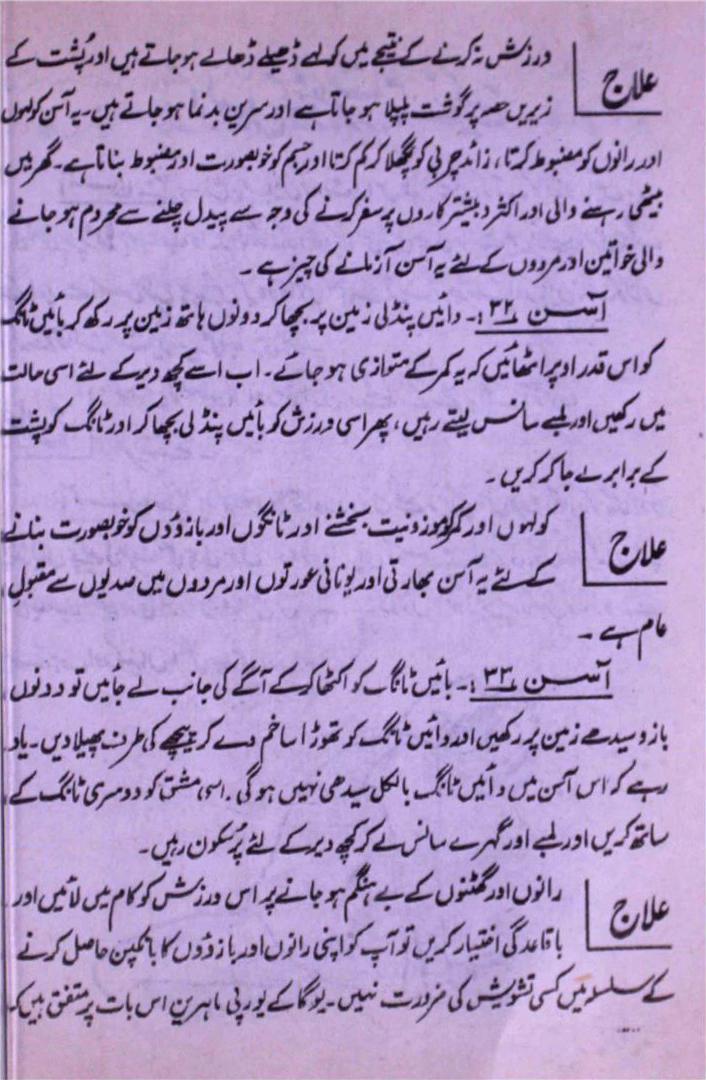 علاج
ورزش نہ کرنے کے نتیجے میں کولہے ڈھیلے ڈھالے ہو جاتے ہیں اور پُشت کے
زیریں حصہ پر گوشت پلپلا ہو جاتا ہے اور سرین بدنما ہو جاتے ہیں۔ یہ آسن کولہوں
اور رانوں کو مضبوط کرتا، زائد چربی کو پگھلا کر کم کرتا اور جسم کو خوبصورت اور مضبوط بناتا ہے۔ گھر میں
بیٹھی رہنے والی اور اکثر و بیشتر کاروں پر سفر کرنے کی وجہ سے پیدل چلنے سے محروم ہو جانے
والی خواتین اور مردوں کے لئے یہ آسن آزمانے کی چیز ہے ۔
آسن ۳۲:۔ دائیں پنڈلی زمین پر بچھا کر دونوں ہاتھ زمین پر رکھ کر بائیں ٹانگ
کو اس قدر اوپر اٹھائیں کہ یہ کمر کے متوازی ہو جائے۔ اب اسے کچھ دیر کے لئے اسی حالت
میں رکھیں اور لمبے سانس لیتے رہیں، پھر اسی ورزش کو بائیں پنڈلی بچھا کر اور ٹانگ کو پشت
کے برابر لے جا کر کریں ۔
علاج
کولہوں اور کمر کو موزونیت بخشنے اور ٹانگوں اور بازوؤں کو خوبصورت بنانے
کے لئے یہ آسن بھارتی اور یونانی عورتوں اور مردوں میں صدیوں سے مقبول
عام ہے ۔
آسن ۳۳:۔ بائیں ٹانگ کو اکٹھا کر کے آگے کی جانب لے جائیں تو دونوں
بازو سیدھے زمین پر رکھیں اور دائیں ٹانگ کو تھوڑا سا خم دے کر پیچھے کی طرف پھیلا دیں۔ یاد
رہے کہ اس آسن میں دائیں ٹانگ بالکل سیدھی نہیں ہو گی۔ اسی مشق کو دوسری ٹانگ کے
ساتھ کریں اور لمبے اور گہرے سانس لے کر کچھ دیر کے لئے پُرسکون رہیں۔
علاج
رانوں اور گھٹنوں کے بے ہنگم ہو جانے پر اس ورزش کو کام میں لائیں اور
باقاعدگی اختیار کریں تو آپ کو اپنی رانوں اور بازوؤں کا بانکپن حاصل کرنے
کے سلسلہ میں کسی تشویش کی ضرورت نہیں۔ یوگا کے یورپی ماہرین اس بات پر متفق ہیں کہ